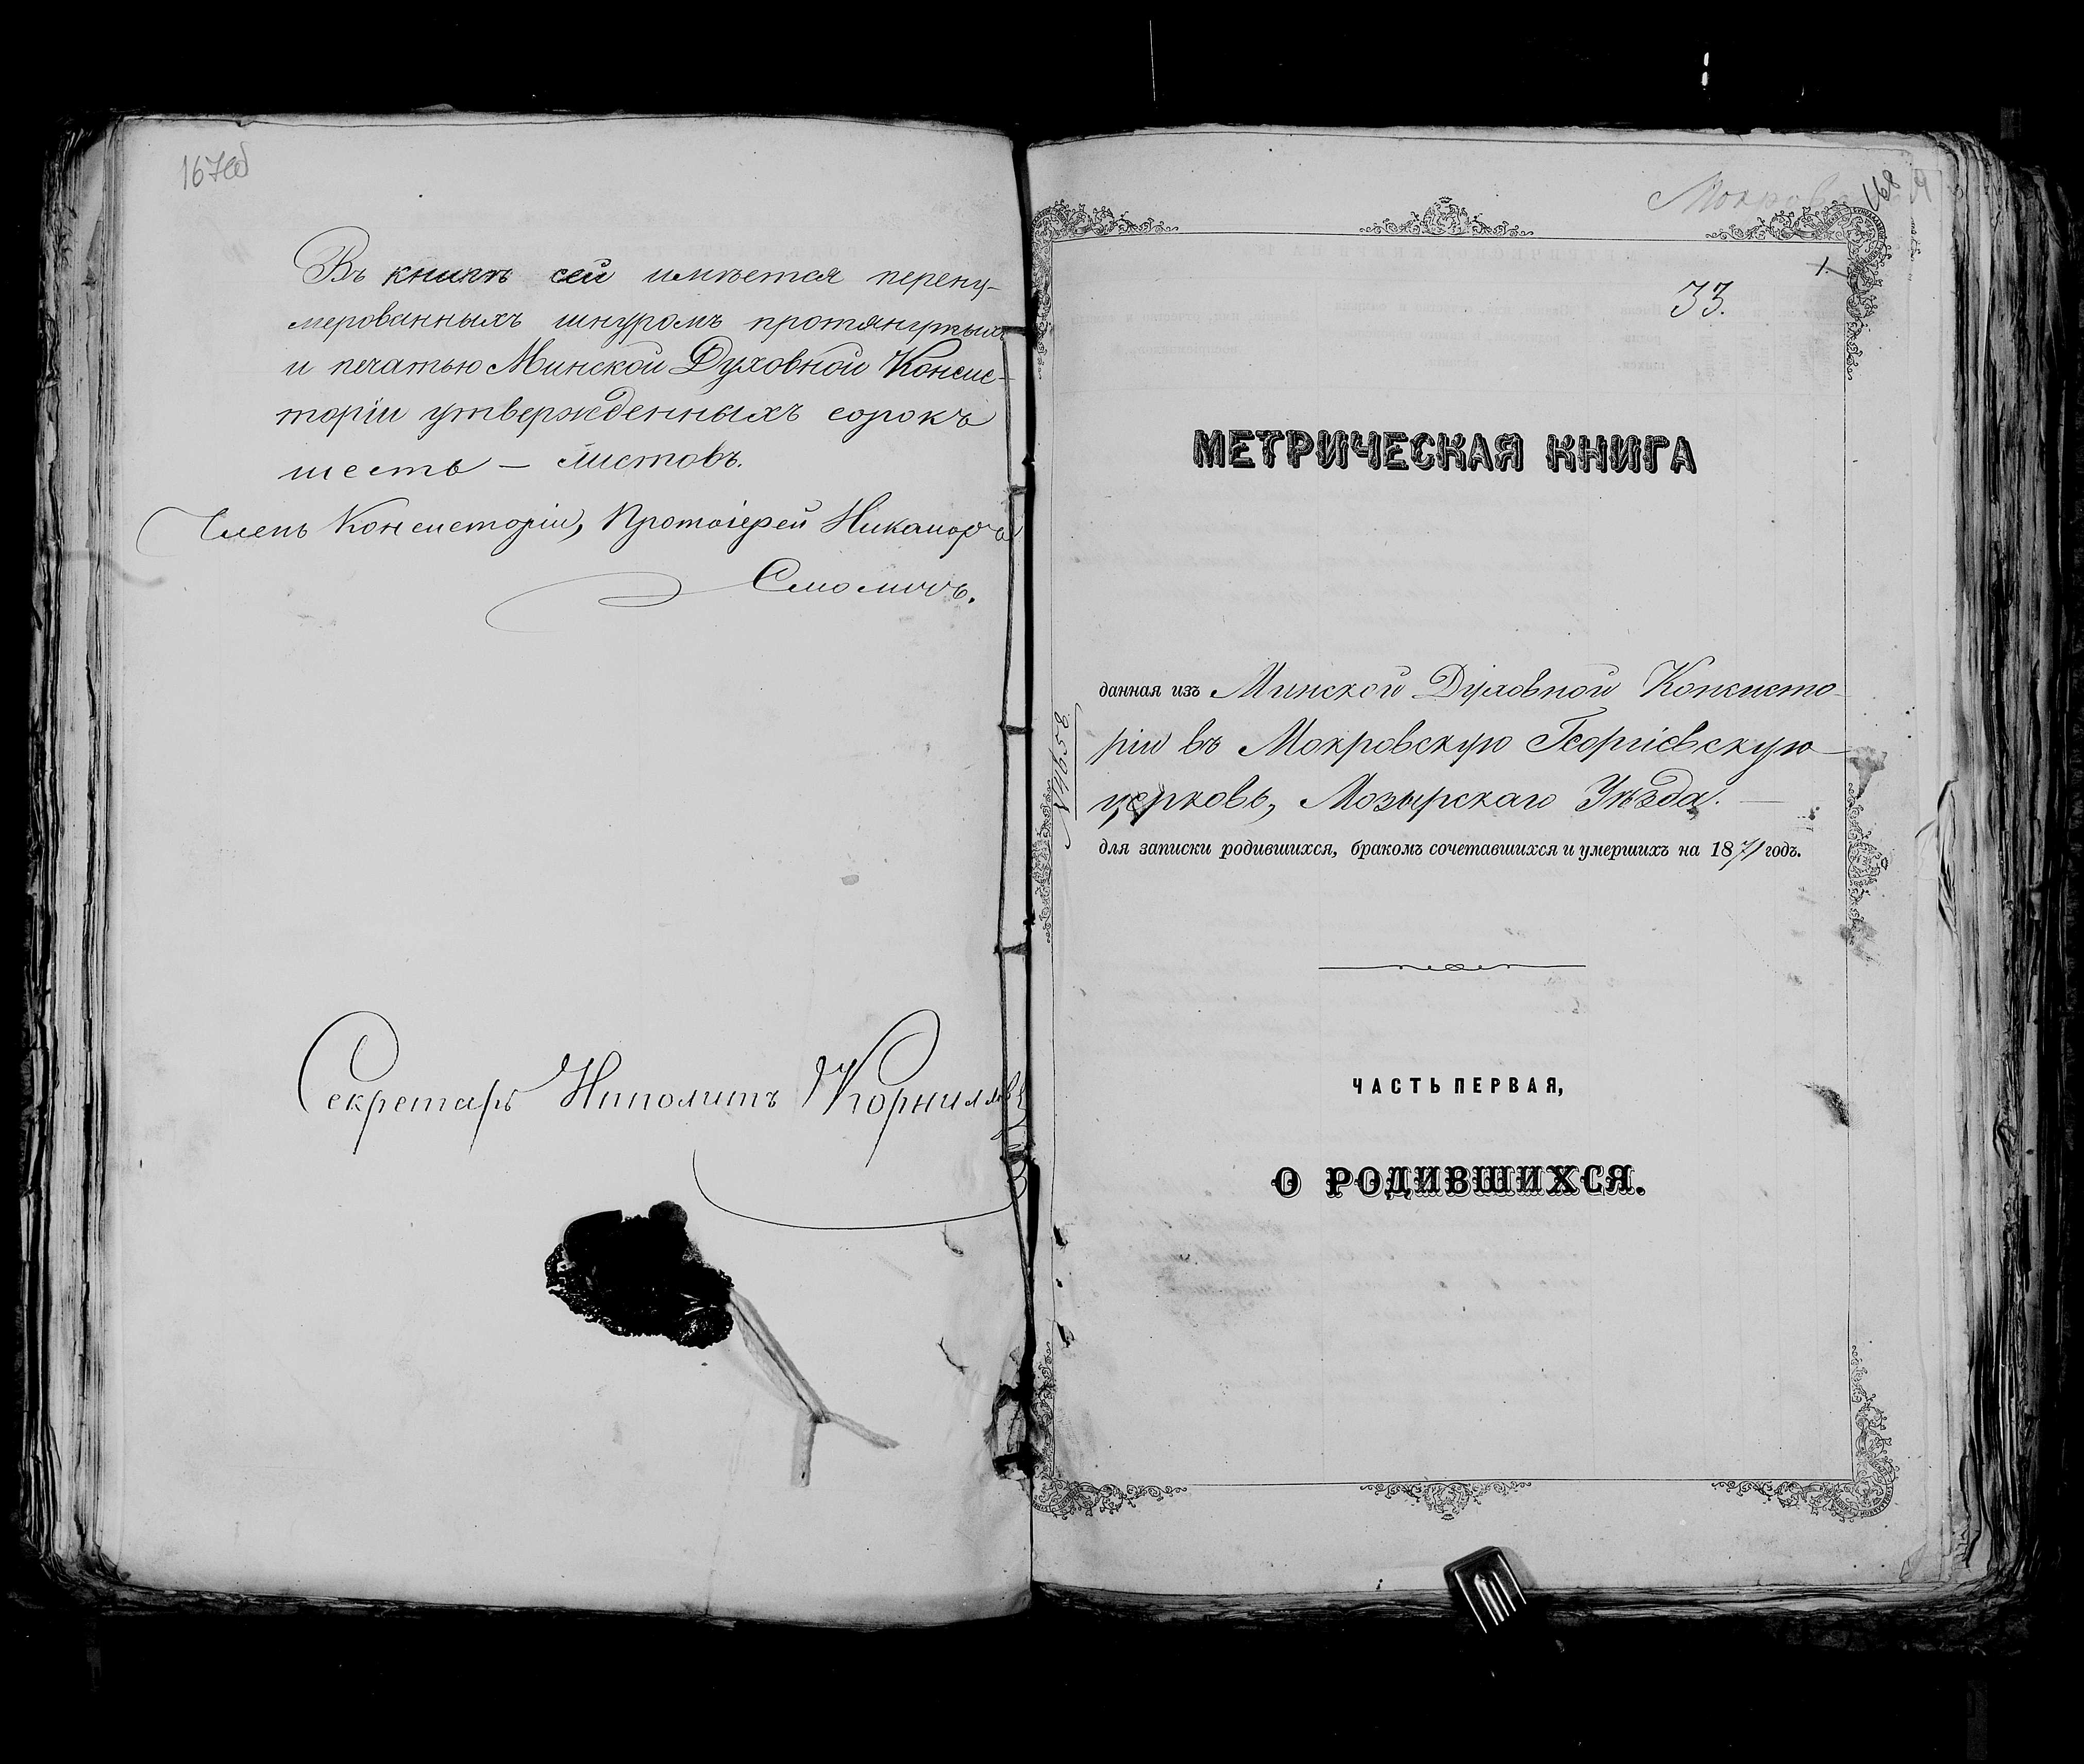 167об
Въ книгѣ сей имѣется перену-
мерованныхъ шнуромъ протянутыхъ
и печатью Минской Духовной Консис-
торіи утвержденныхъ сорокъ
шесть – листовъ.
Членъ Консисторіи, Протоіерей Никаноръ
Смоличъ.
Секретарь Ипполитъ
168
1.
33.
МЕТРИЧЕСКАЯ КНИГА
данная изъ Минской Духовной Консисто-
ріи въ Мокровскую Георгіевскую
церковь, Мозырскаго Уѣзда. —
№4658
для записки родившихся, бракомъ сочетавшихся и умершихъ на 1871 годъ.
ЧАСТЬ ПЕРВАЯ,
О РОДИВШИХСЯ.